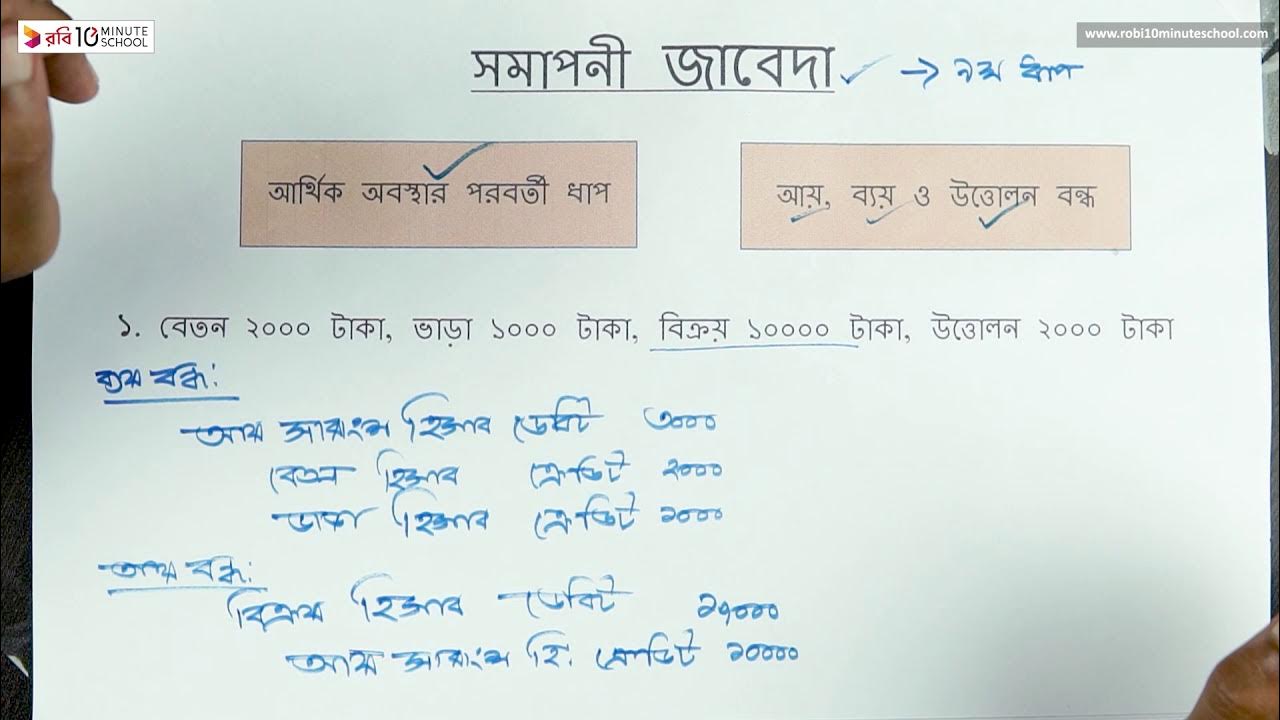 রবি 10 MINUTE SCHOOL
www.robi10minuteschool.com
সমাপনী জাবেদা → ৯ম ধাপ
আর্থিক অবস্থার পরবর্তী ধাপ
আয়, ব্যয় ও উত্তোলন বন্ধ
১. বেতন ২০০০ টাকা, ভাড়া ১০০০ টাকা, বিক্রয় ১০০০০ টাকা, উত্তোলন ২০০০ টাকা
ব্যয় বন্ধ:
আয় সারাংশ হিসাব ডেবিট ৩০০০
বেতন হিসাব ক্রেডিট ২০০০
ভাড়া হিসাব ক্রেডিট ১০০০
আয় বন্ধ:
বিক্রয় হিসাব ডেবিট ১০০০০
আয় সারাংশ হি. ক্রেডিট ১০০০০